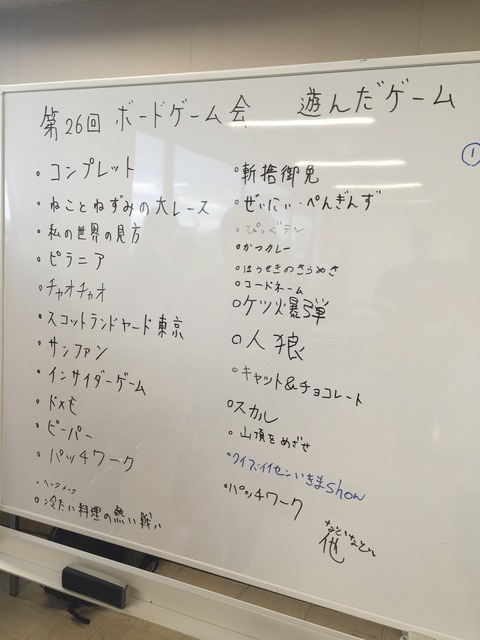 第26回 ボードゲーム会 遊んだゲーム
①
。コンプレット
。ねことねずみの大レース
。私の世界の見方
。ピラニア
。チャオチャオ
。スコットランドヤード東京
。サンファン
。インサイダーゲーム
。ドメモ
。ビーバー
。パッチワーク
。ヘックメック
。冷たい料理の熱い戦い
。斬捨御免
。ぜいにい・ぺんぎんず
。ぴっぐテン
。かつカレー
。ほうせきのきらめき
。コードネーム
。ケツ爆弾
。人狼
。キャット&チョコレート
。スカル
。山頂をめざせ
。クイズいいセンいきまshow
。パッチワーク
などなど
他